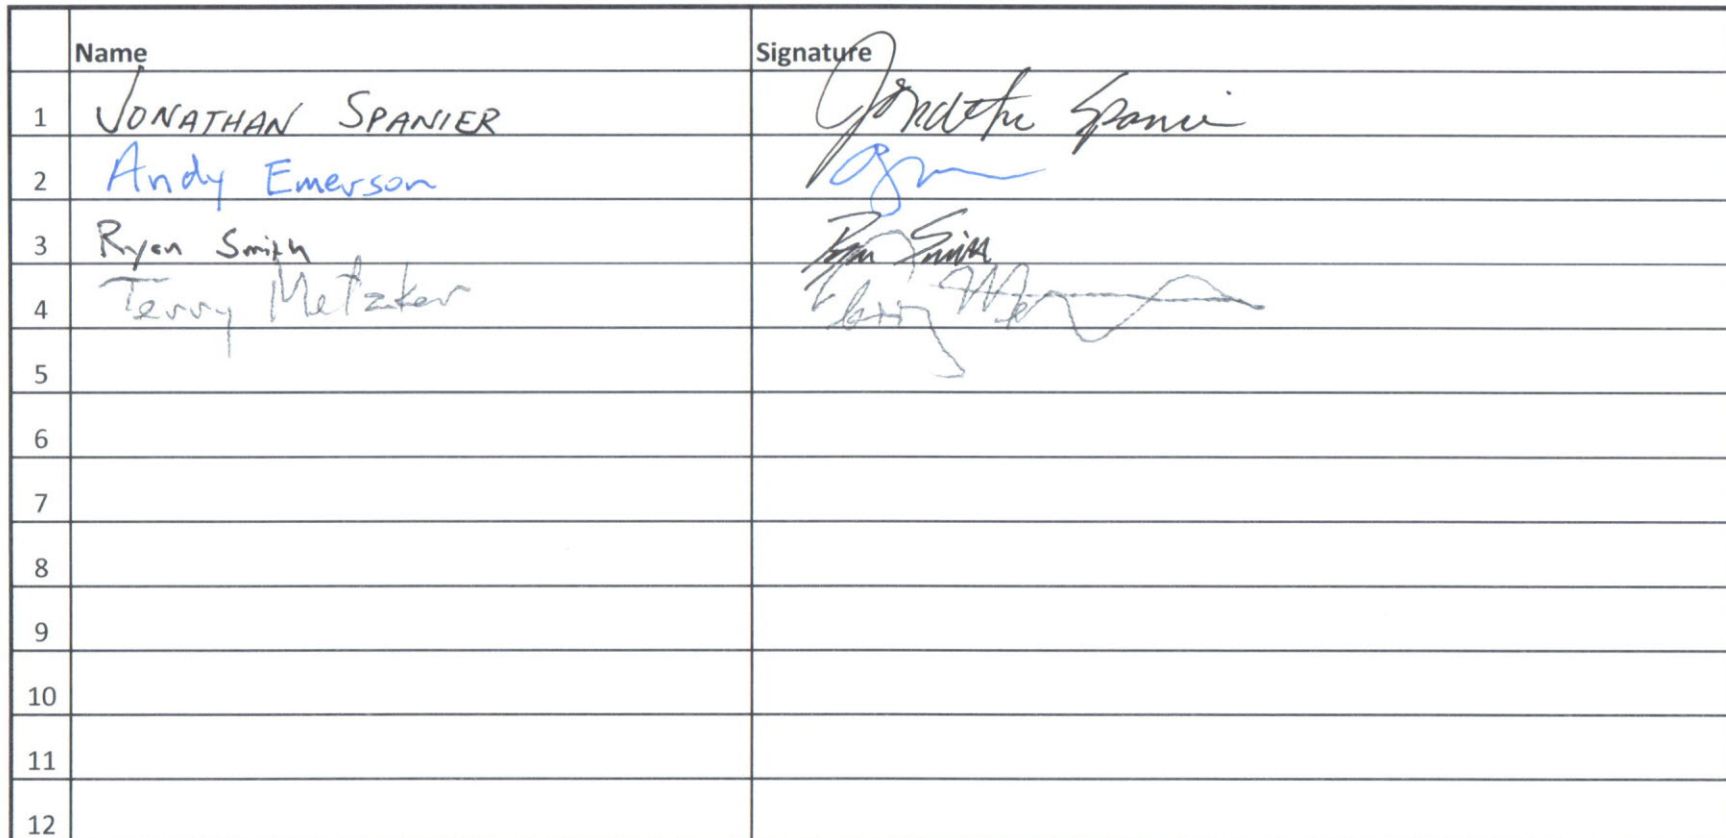 Name Signature
1 JONATHAN SPANIER Jonathan Spanier
2 Andy Emerson
3 Ryan Smith Ryan Smith
4 Terry Metzker Terry
5
6
7
8
9
10
11
12